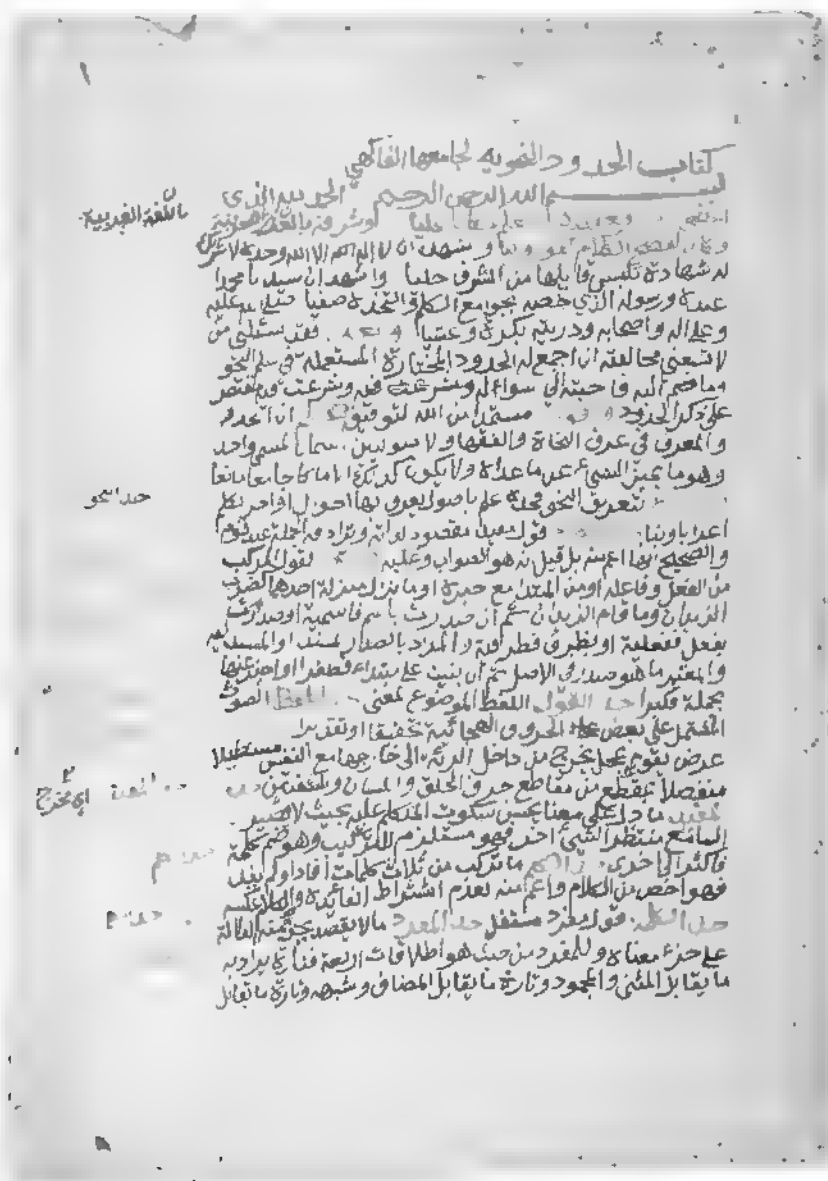 كتاب الحدود النحوية لجامعها الفاكهي
بسم الله الرحمن الرحيم الحمد لله الذي
باللغة العربية
وشرفه باللغة العربية
ونشهد ان لا اله الا الله وحده لا شريك
له شهادة تكسبي قايلها من الشرف حليا واشهد ان سيدنا محمدا
عبده ورسوله الذي خصه بجوامع الكلم واتخذه صفيا صلى الله عليه
وعلى اله واصحابه وذريته بكرة وعشيا وبعد فقد سئلني من
لا تسعني مخالفته ان اجمع له الحدود المختارة المستعملة في علم النحو
وما ضم اليه فاجبته الى سواله وشرعت فيه وشرعت فيه مقتصر
على ذكر الحدود مستمدا من الله التوفيق ان الحد
والمعرف في عرف النحاة والفقها والاصوليين اسمان لمسمى واحد
وهو ما يميز الشيء عن ما عداه ولا يكون كذلك الا ما كان جامعا مانعا
حد النحو
تعريف النحو فحده علم باصول يعرف بها احوال اواخر الكلم
اعرابا وبنا قول مفيد مقصود لذاته وترادفه الجملة عند قوم
والصحيح انها اعم منه بل قيل انه هو الصواب وعليه القول المركب
من الفعل وفاعله او من المبتدا مع خبره او ما نزل منزلة احدهما كضرب
الزيدان وما قام الزيدان ثم ان صدرت باسم فاسمية او صدرت
بفعل ففعلية او بظرف فظرفية والمراد بالصدر المسند او المسند اليه
والمعتبر ما هو صدر في الاصل ثم ان بنيت على مبتداء فصغرا او اخبر عنها
بجملة فكبرا حد القول اللفظ الموضوع لمعنى اللفظ الصوت
المشتمل على بعض الحروف الهجائية تحقيقا او تقديرا
عرض يقوم بمحل يخرج من داخل الرئة الى خارجها مع النفس مستطيلا
اي مخرج
منفصلا بمقطع من مقاطع حروف الحلق واللسان والشفتين حد
المفيد ما دل على معنا يحسن سكوت المتكلم عليه بحيث لا يصير
السامع منتظرا لشيء اخر فهو مستلزم للتركيب وهو ضم كلمة
فاكثر الى اخرى حد الكلم ما تركب من ثلاث كلمات افاد او لم يفد
فهو اخص من الكلام واعم منه لعدم اشتراط الفائدة والكلام عكسه
حد الكلمة قول مفرد مستقل حد المفرد ما لا يقصد بجزء منه الدلالة
على جزء معناه وللمفرد من حيث هو اطلاقات اربعة فتارة يراد به
ما يقابل المثنى والمجموع وتارة ما يقابل المضاف وشبهه وتارة ما يقابل